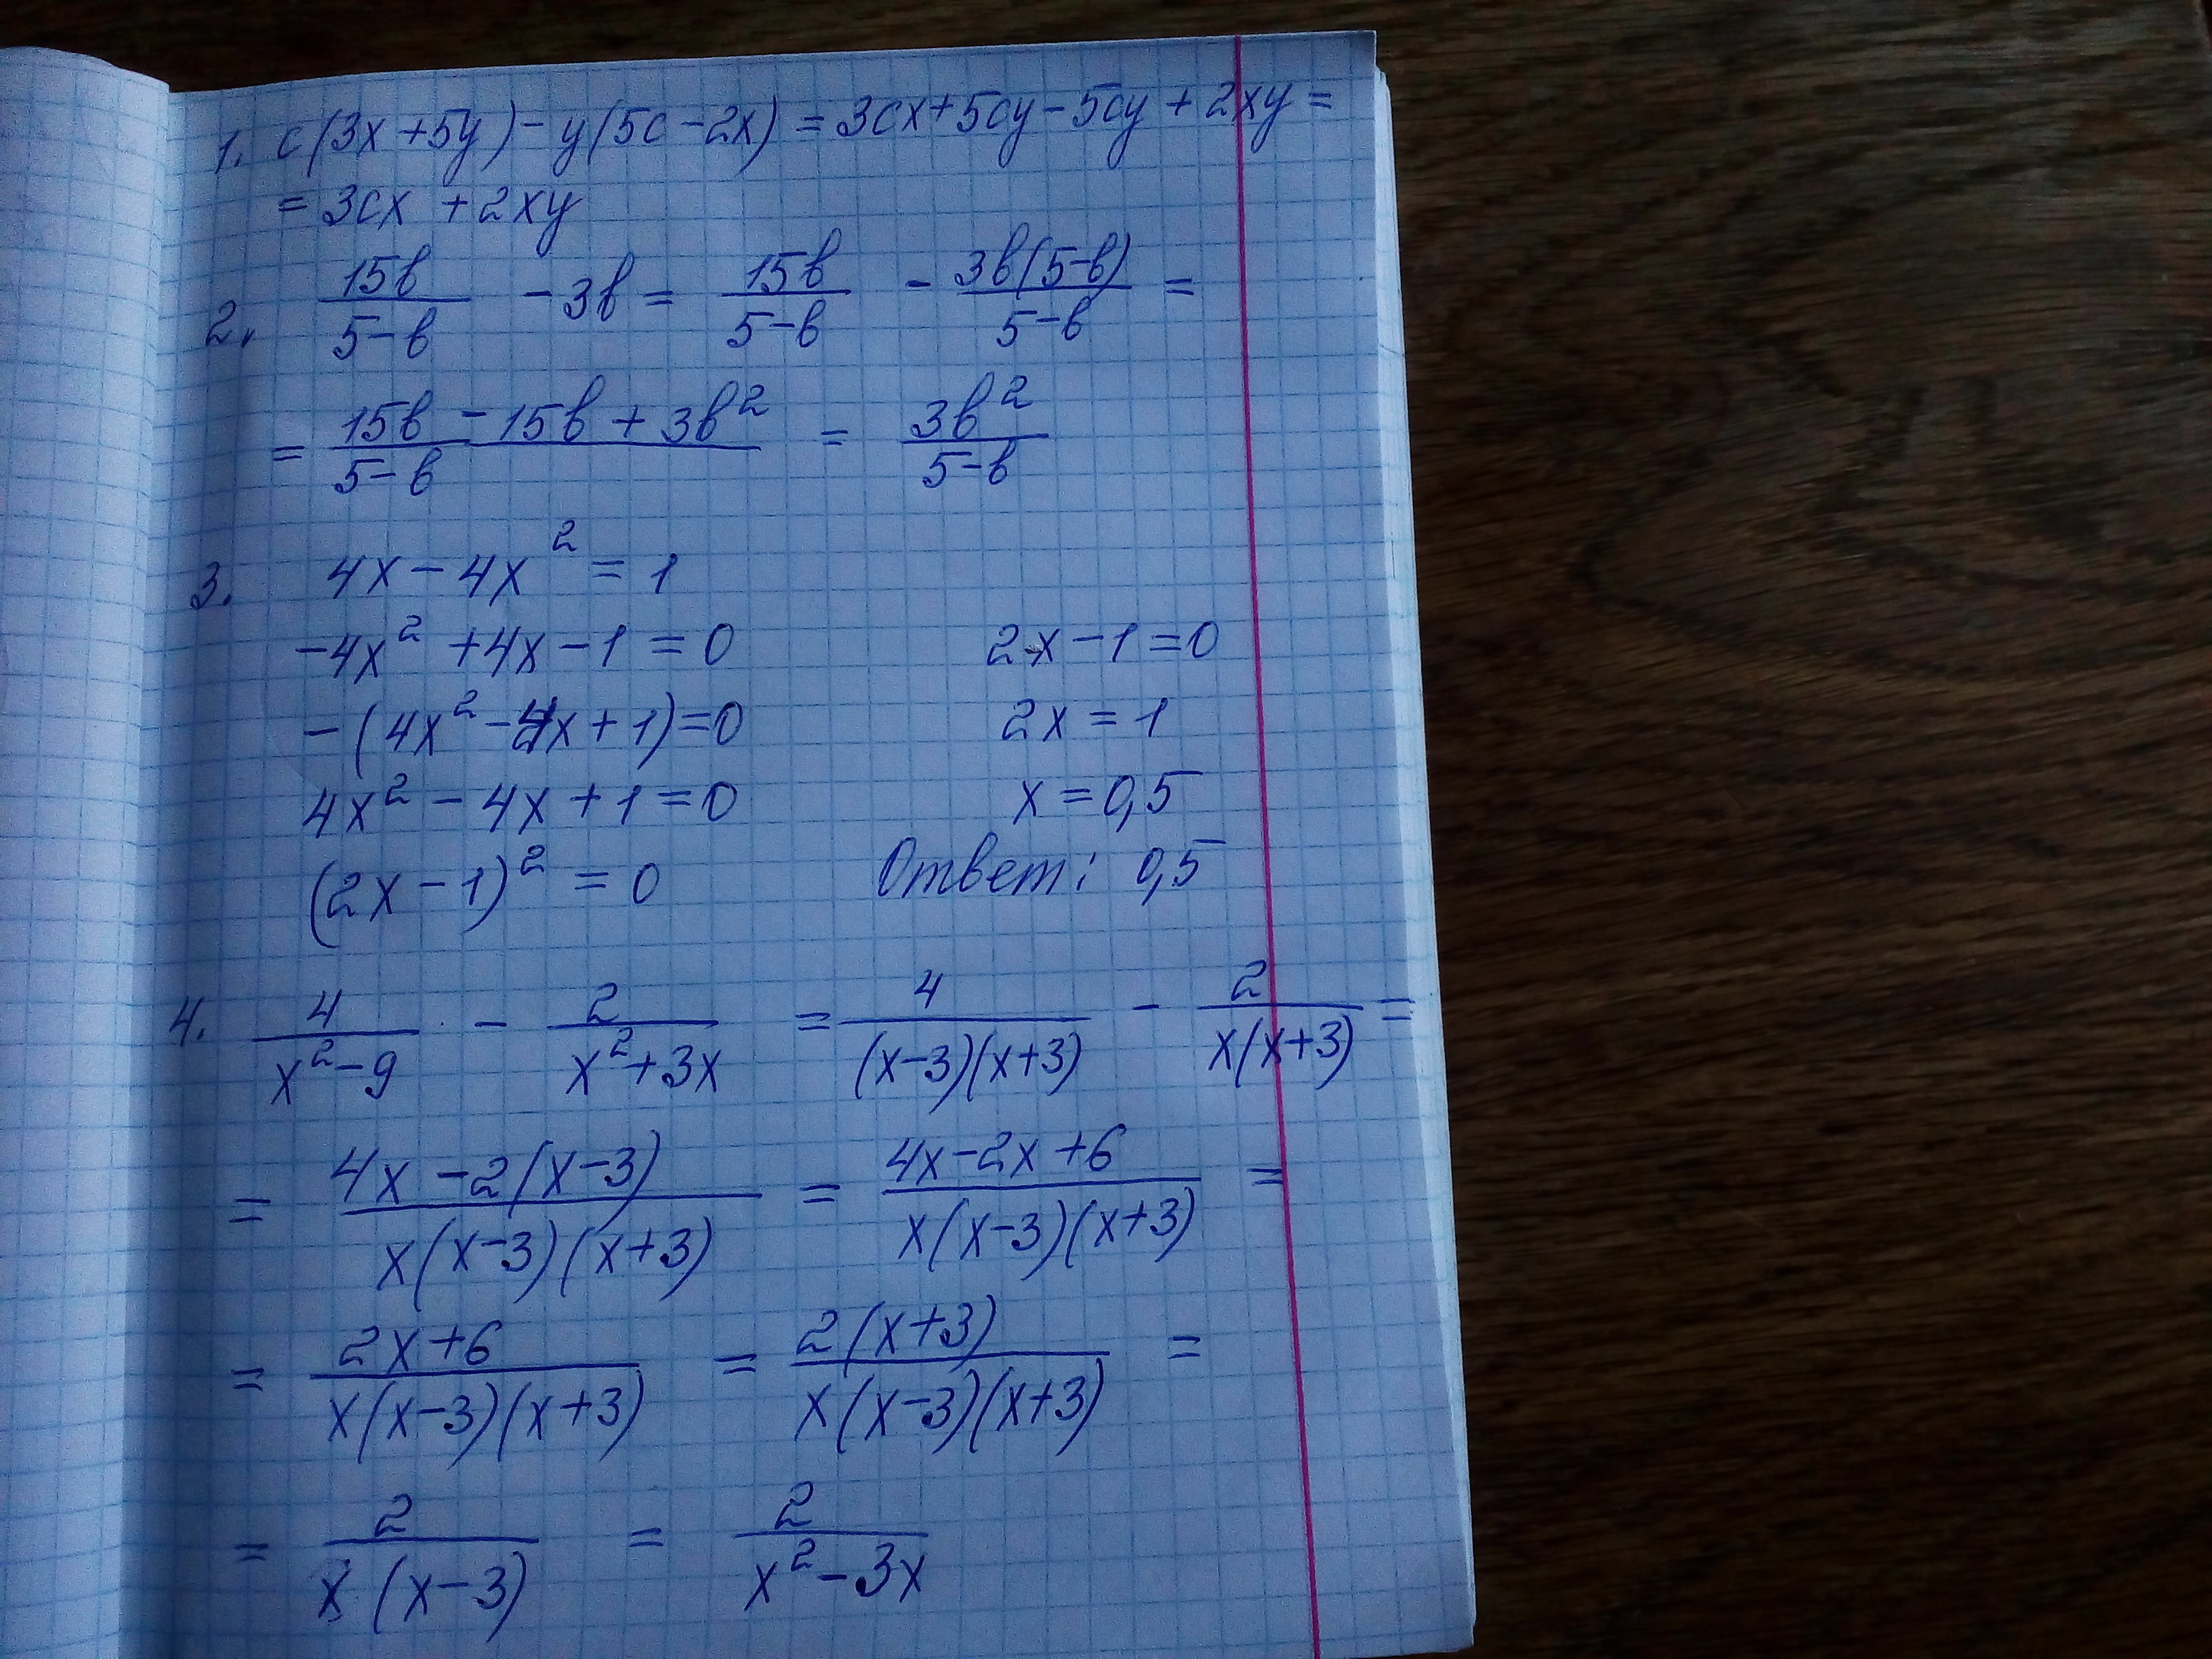 1. c(3x+5y)-y(5c-2x)=3cx+5cy-5cy+2xy=
=3cx+2xy
2. 15в/(5-в) -3в= 15в/(5-в) - 3в(5-в)/(5-в) =
= (15в-15в+3в²)/(5-в) = 3в²/(5-в)
3. 4x-4x²=1
-4x²+4x-1=0
-(4x²-4x+1)=0
4x²-4x+1=0
(2x-1)²=0
2x-1=0
2x=1
x=0,5
Ответ: 0,5
4. 4/(x²-9) - 2/(x²+3x) = 4/((x-3)(x+3)) - 2/(x(x+3)) =
= (4x-2(x-3))/(x(x-3)(x+3)) = (4x-2x+6)/(x(x-3)(x+3)) =
= (2x+6)/(x(x-3)(x+3)) = 2(x+3)/(x(x-3)(x+3)) =
= 2/(x(x-3)) = 2/(x²-3x)